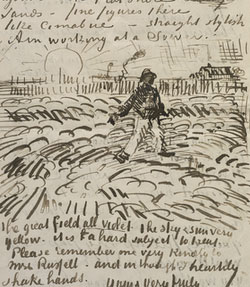 sands - fine figures there
like Cimabue - straight stylish
Am working at a Sower.
the great field all violet the sky & sun very
yellow. it is a hard subject to treat.
Please remember me very kindly to
Mrs Russell - and in thought heartily
shake hands.
Yours very truly